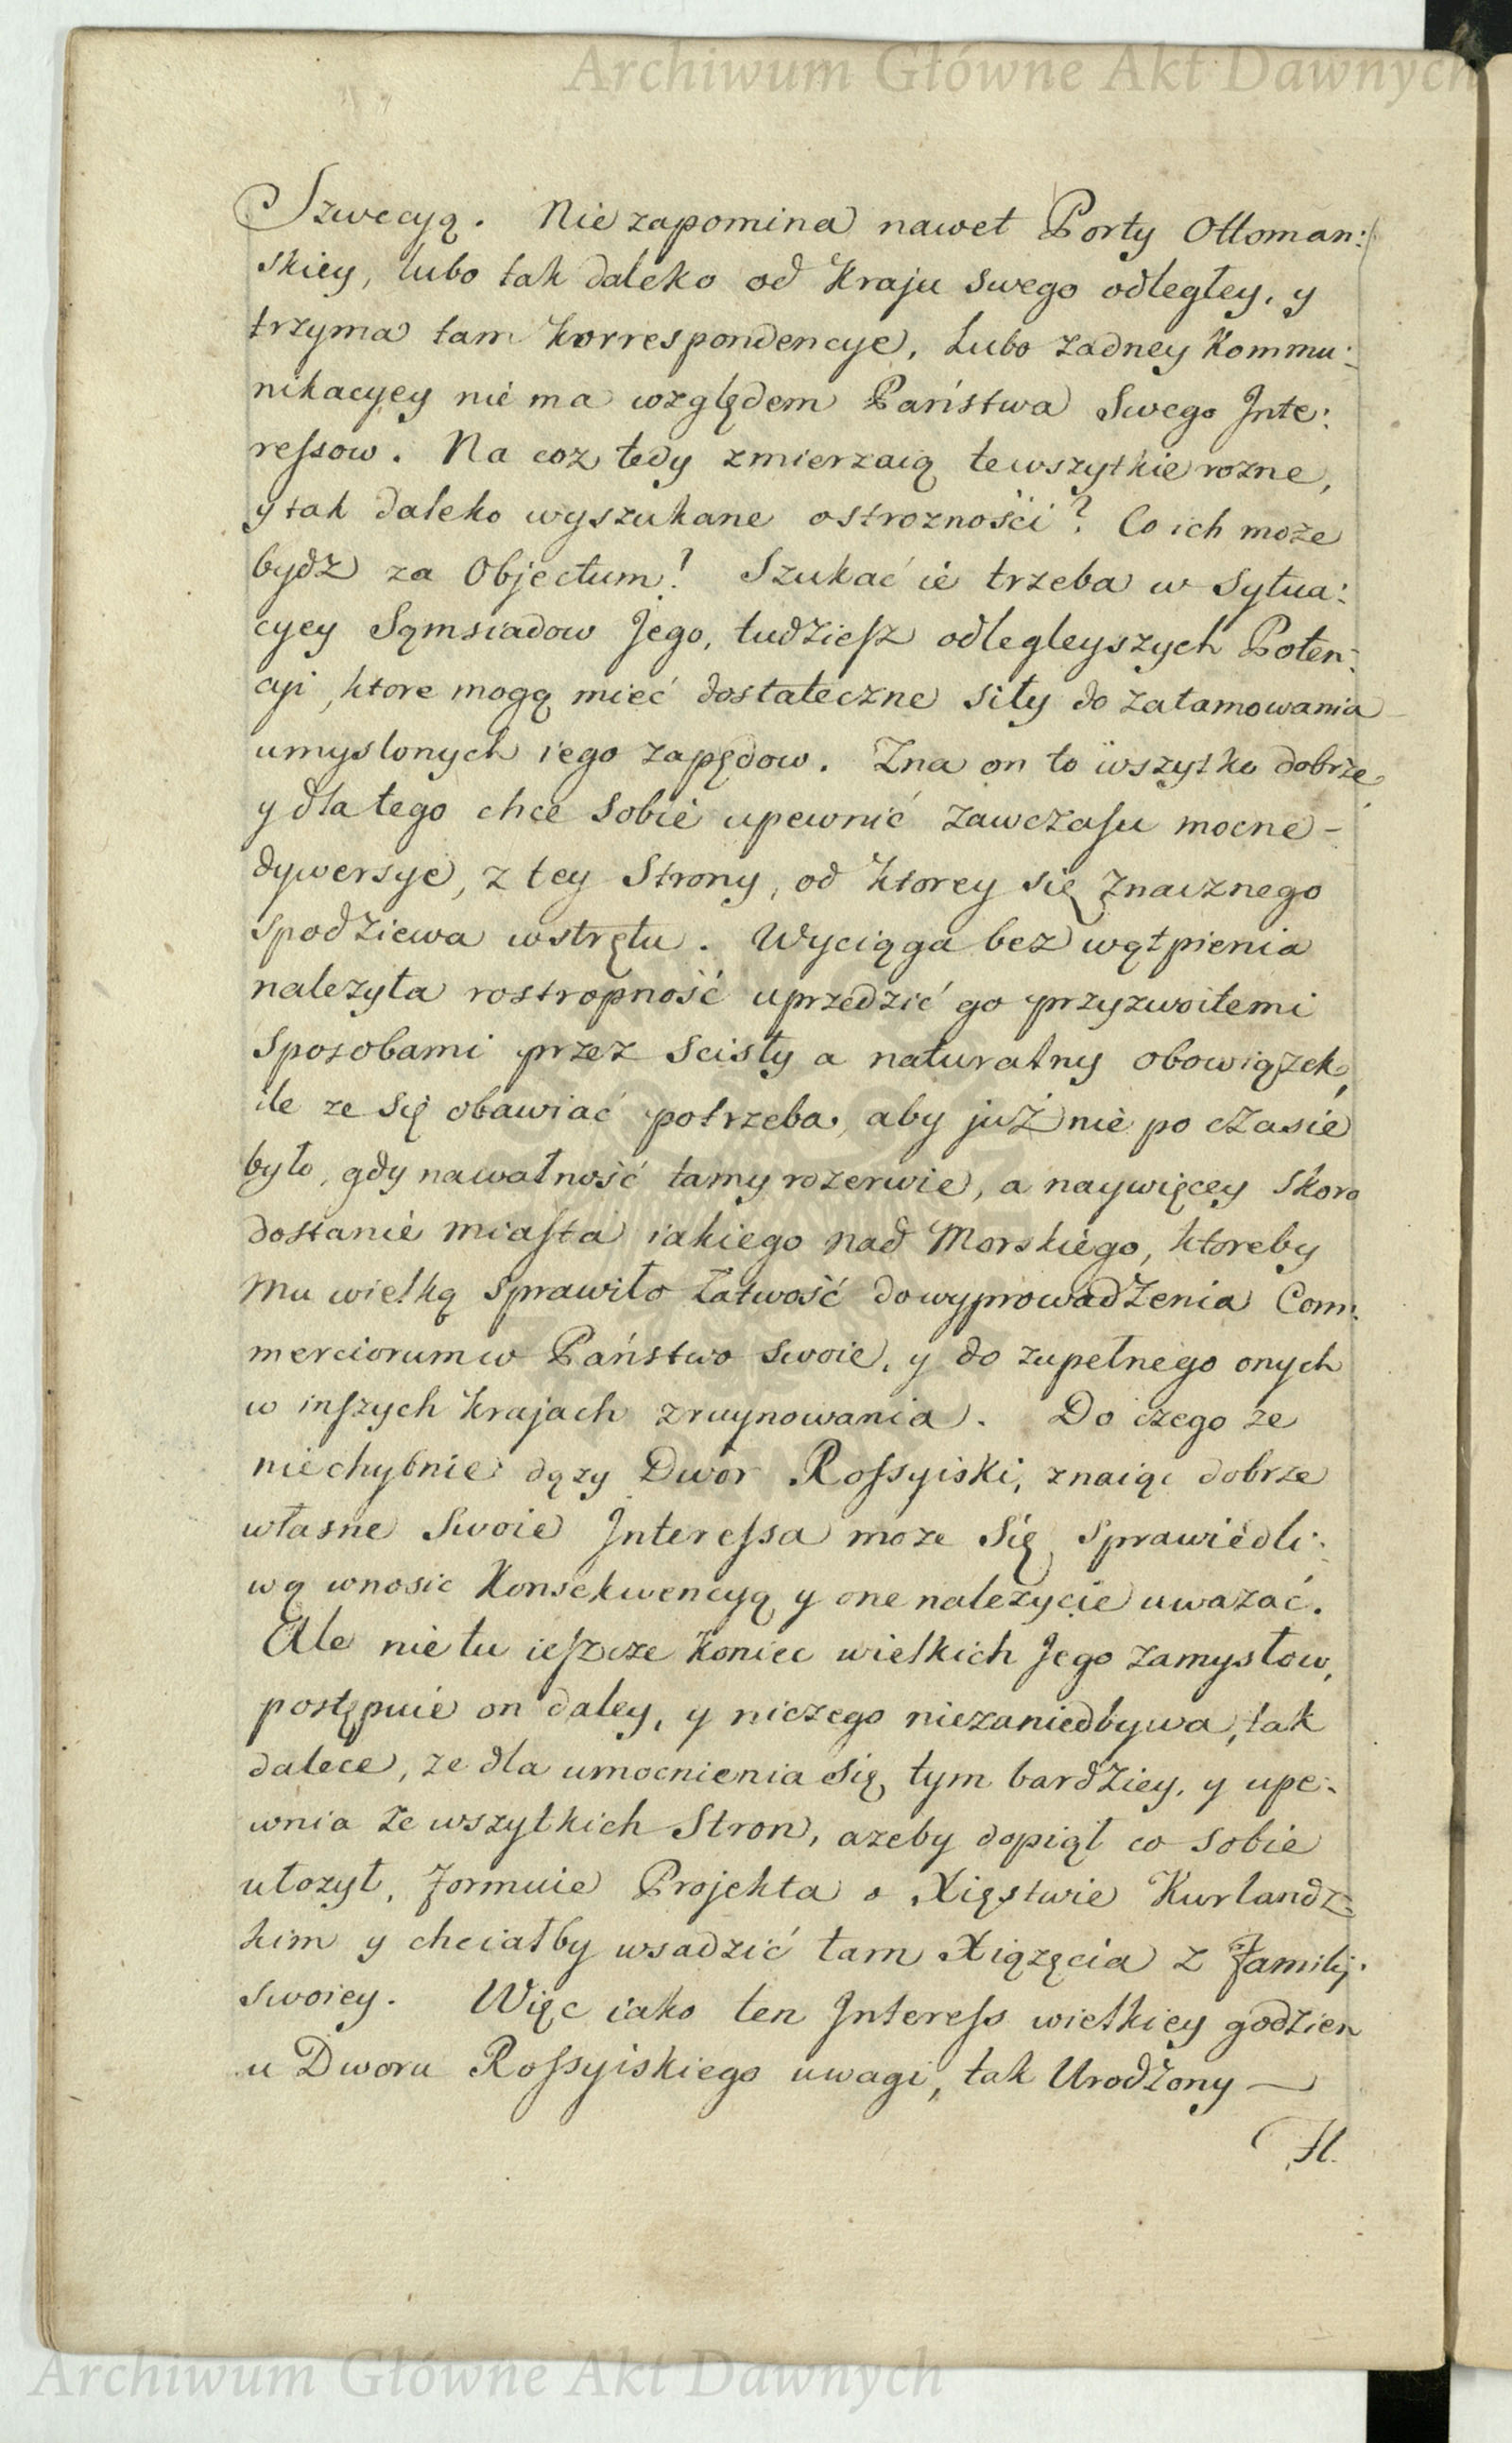 Archiwum Główne Akt Dawnych
Szwecyą. Nie zapomina nawet Porty Ottoman:
skiey, lubo tak daleko od Kraju swego odległey, y
trzyma tam Korrespondencye, Lubo zadney Kommu:
nikacyey nie ma względem Państwa Swego Inte:
ressow. Na coz tedy zmierzaią te wszytkie rozne,
y tak daleko wyszukane ostrozności? Co ich może
bydz za Objectum? Szukać ie trzeba w Sytua:
cyey Sąmsiadow Jego, tudziesz odlegleyszych Poten:
cyi, ktore mogą mieć dostateczne siły do zatamowania
umyslonych iego zapędow. Zna on to wszytko dobrze,
y dla tego chce Sobie upewnić zawczasu mocne -
dywersye, z tey Strony, od Ktorey się znacznego
spodziewa wstrętu. Wyciąga bez wątpienia
nalezyta rostropność uprzedzić go przyzwoitemi
Sposobami przez scisły a naturalny obowiązek,
ile ze się obawiać potrzeba, aby już nie po czasie
było, gdy nawałność tamy rozerwie, a naywięcey Skoro
dostanie miasta iakiego nad Morskiego, ktoreby
mu wielką sprawiło łatwość do wyprowadzenia Com:
merciorum w Państwo swoie, y do zupełnego onych
w inszych Krajach zruynowania. Do czego ze
niechybnie dązy Dwor Rossyiski, znaiąc dobrze
własne Swoie Interessa moze się sprawiedli:
wą wnosic Konsekwencyą y one nalezycie uwazać.
Ale nie tu ieszcze koniec wielkich Jego zamysłow,
postępuie on daley, y niczego niezaniedbywa, tak
dalece, ze dla umocnienia się tym bardziey, y upe:
wnia ze wszytkich Stron, azeby dopiął co sobie
ułozył, formuie Projekta o Xięstwie Kurlandz:
kim y chciałby wsadzić tam Xiązęcia z Familij
swoiey. Więc iako ten Interess wielkiey godzien
u Dworu Rossyiskiego uwagi, tak Urodzony —
H.
Archiwum Główne Akt Dawnych